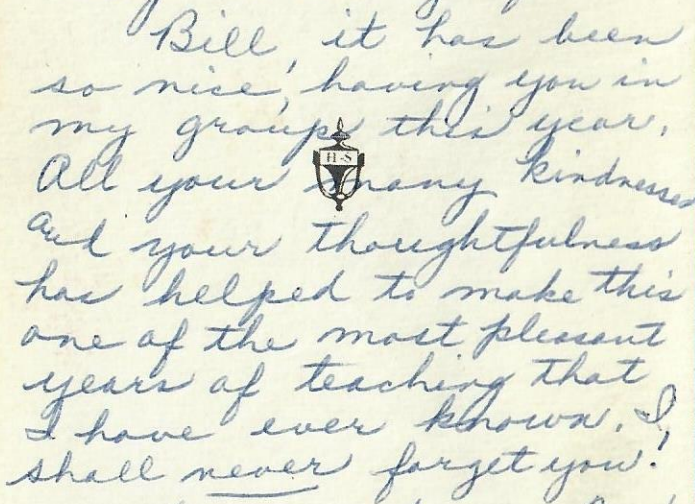 Bill, it has been
so nice, having you in
my group this year.
H-S
All your many kindnesses
and your thoughtfulness
has helped to make this
one of the most pleasant
years of teaching that
I have ever known. I,
shall never forget you.